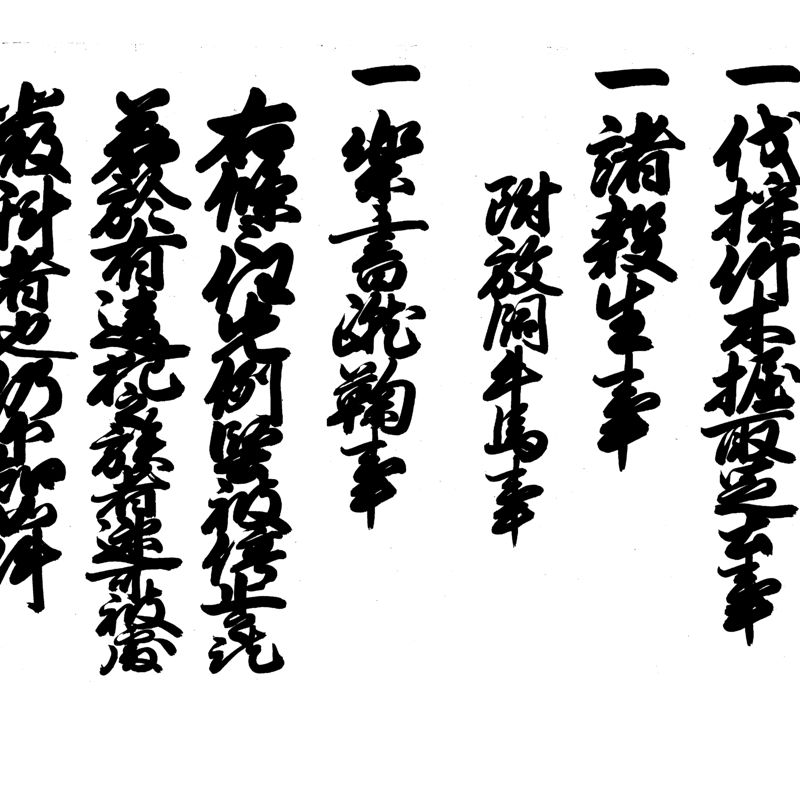 一 伐採竹木掘取土石事
一 諸殺生事
附放飼牛馬事
一 楽書蹴鞠事
右條々任先例堅被停止之訖
若於有違犯之族者速可被處
嚴科者也仍下知如件